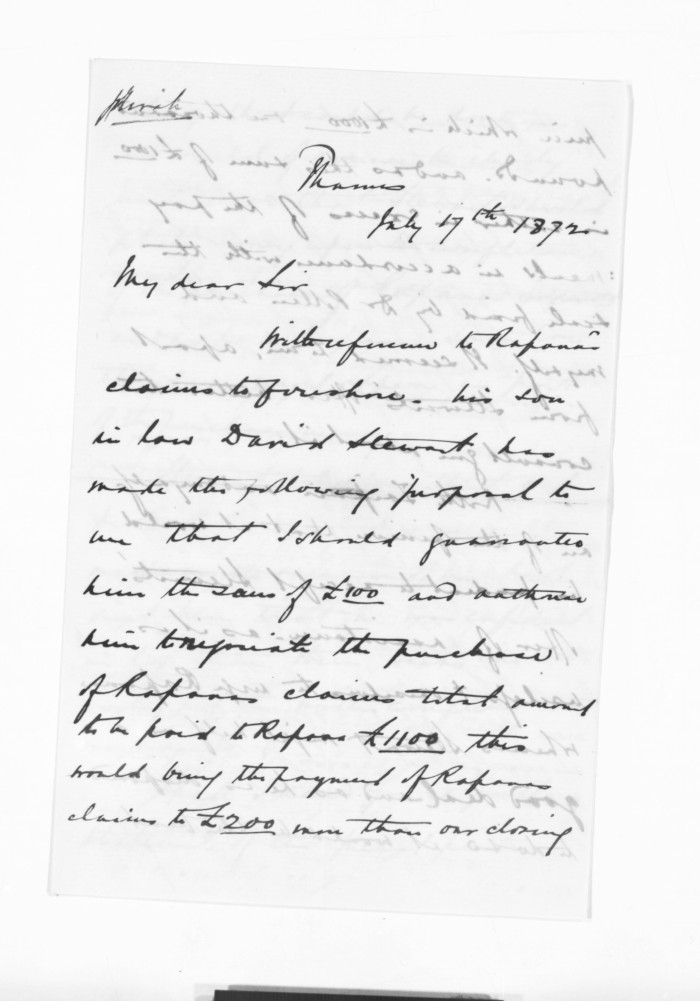 Private
Thames
July 17th 1872
My dear Sir
With reference to Rapana's
claims to foreshore. his son
in law David Stewart has
made the following proposal to
me that I should guarantee
him the sum of £100 and authorise
him to negociate the purchase
of Rapanas claims total amount
to be paid to Rapana £1100 this
would bring the payment of Rapanas
claims to £200 more than our closing